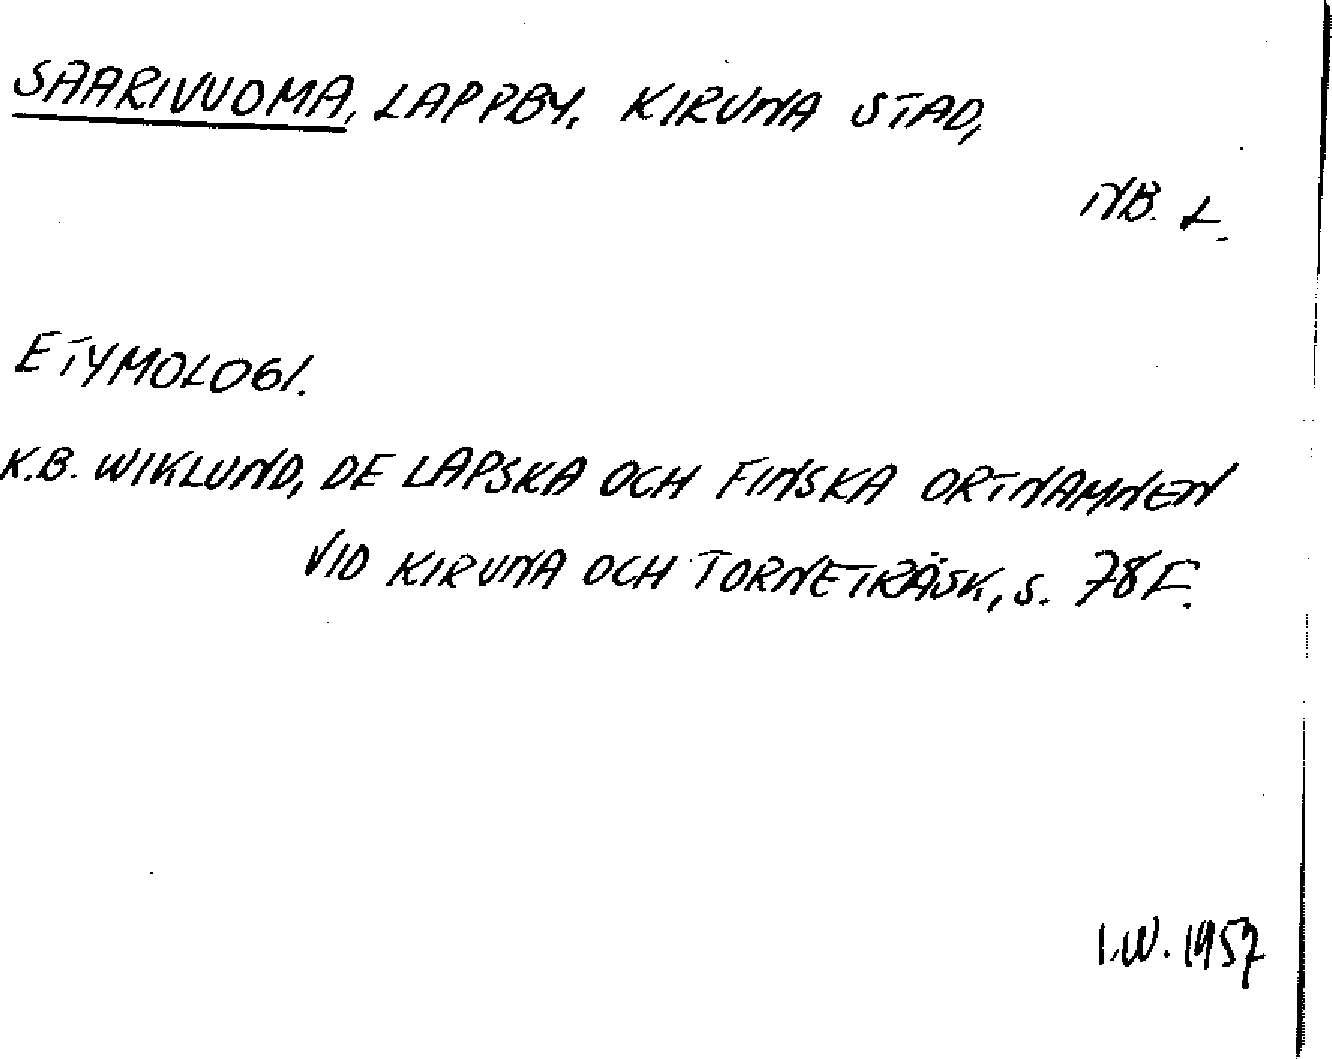 SAARIVUOMA, LAPPBY. KIRUNA STAD,
NB. L.
ETYMOLOGI.
K.B. WIKLUND, DE LAPSKA OCH FINSKA ORTNAMNEN
VID KIRUNA OCH TORNETRÄSK, S. 78 F.
I.W. 1957